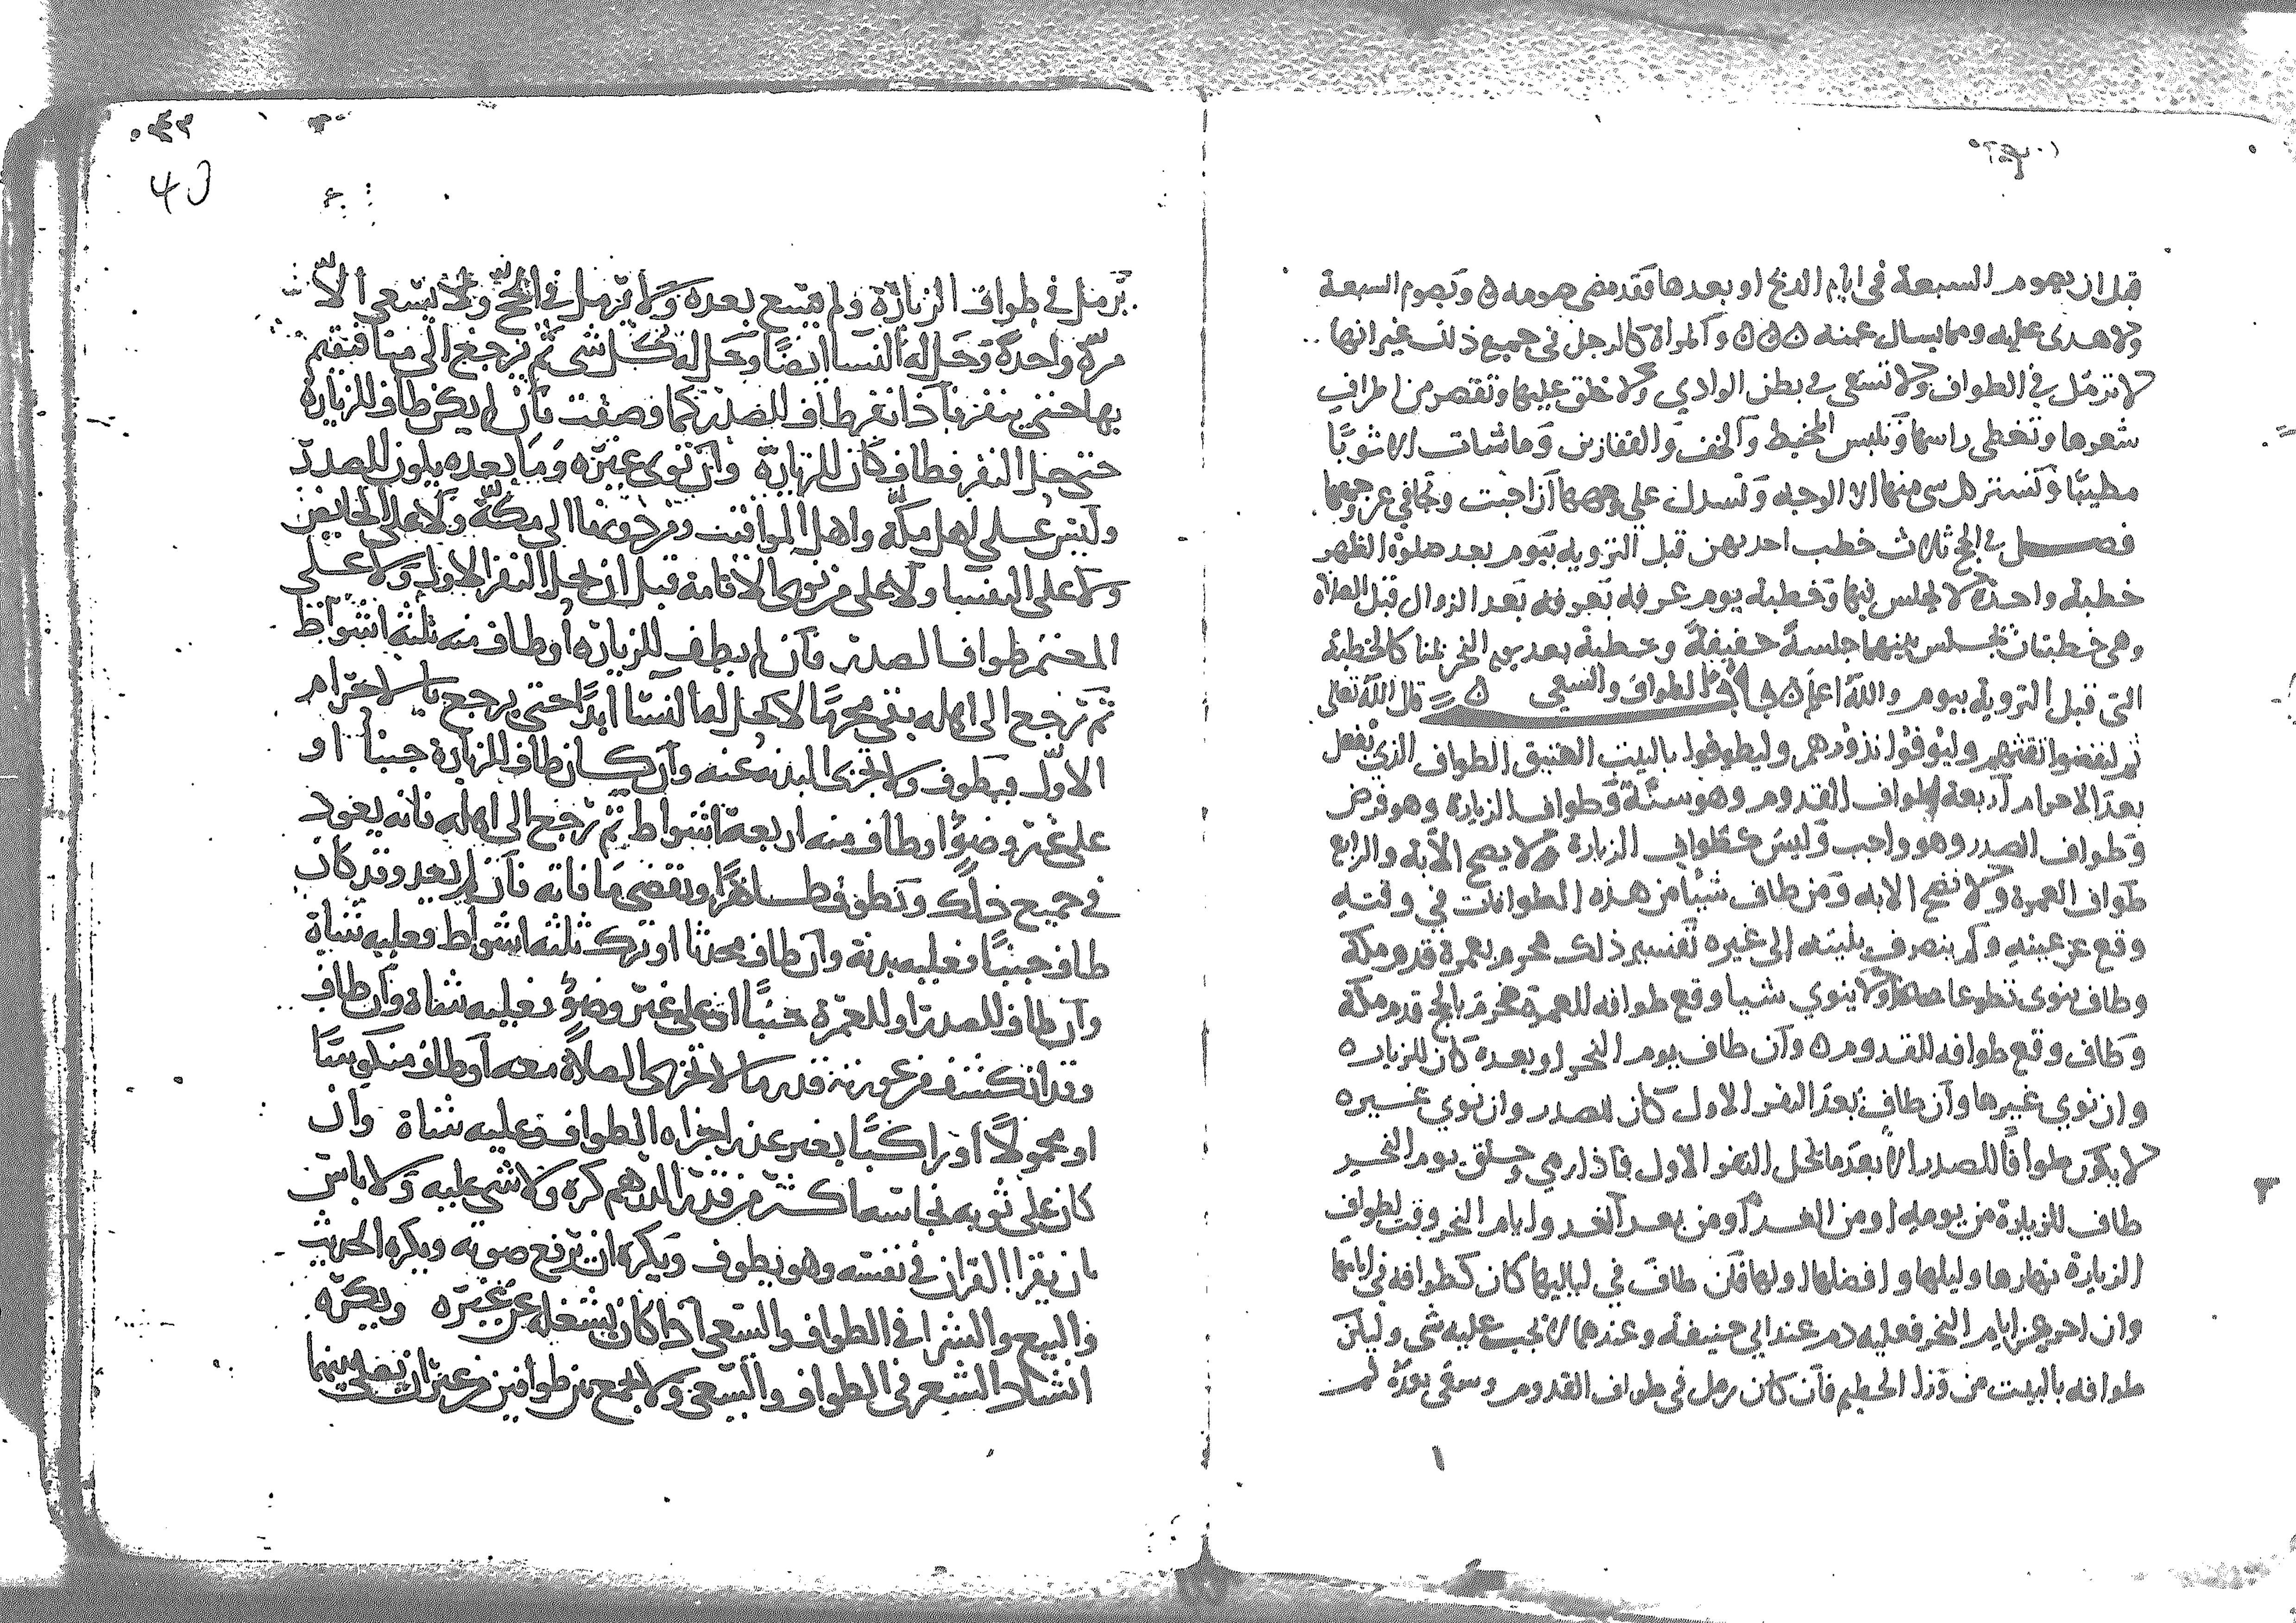 قبل ان يصوم السبعة في ايام الذبح او بعدها فقد مضى صومه ه وتصوم السبعة
ولا هدى عليه ومما يسال عنه ه ه ه والمراة كالرجل في جميع ذلك غير انها
لا ترمل في الطواف ولا تسعى في بطن الوادي ولا حلق عليها وتقصر من اطراف
شعرها وتغطى راسها وتلبس المخيط والخف والقفازين وما شات الا ثوبًا
مطيبًا وتستر كل شى منها الا الوجه وتسدل على وجهها ان احبت وتجافي عن وجهها
فصل في الحج ثلاث خطب احديهن قبل التروية بيوم بعد صلوة الظهر
خطبة واحدة لا يجلس فيها وخطبة يوم عرفه بعرفه بعد الزوال قبل الصلاة
وهي خطبتان يجلس بينهما جلسة خفيفة وخطبة بعد يوم النحر بمنا كالخطبة
التى قبل التروية بيوم والله اعلم ه باب الطواف والسعي ه قال الله تعالى
ثم ليقضوا تفثهم وليوفوا نذورهم وليطوفوا بالبيت العتيق الطواف الذي يفعل
بعد الاحرام اربعة طواف القدوم وهو سنة وطواف الزيارة وهو فرض
وطواف الصدر وهو واجب وليس كطواف الزيارة لا يصح الا به والرابع
طواف العمرة ولا تصح الا به ومن طاف شيئًا من هذه الطوافات في وقته
وقع عن عينه ولم ينصرف بنيته الى غيره تفسير ذلك محرم بعمرة قدم مكة
وطاف ينوى تطوعا اولا ينوي شيا وقع طوافه للعمرة محرم بالحج قدم مكة
وطاف وقع طوافه للقدوم ه وان طاف يوم النحر او بعده كان للزيارة
وان نوي غيرها وان طاف بعد النفر الاول كان للصدر وان نوي غيره
لا يكون طوافًا للصدر الا بعد ما يحل النفر الاول فاذا رمي وحلق يوم النحر
طاف للزيارة من يومه او من الغد او من بعد الغد وايام النحر وقت لطواف
الزيارة نهارها وليلها وافضلها اولها فان طاف في لياليها كان كطوافه في ايامها
وان اخر عن ايام النحر فعليه دم عند ابي حنيفة وعندهما لا يجب عليه شي وليكن
طوافه بالبيت من ورا الحطيم فان كان رمل في طواف القدوم وسعى بعده لم
يرمل في طواف الزيارة ولم يسع بعده ولا يرمل في الحج ولا يسعى الا
مرة واحدة وحل له النسا ايضًا وحل له كل شى ثم يرجع الى منا فيقيم
بها حتى ينفر فاذا نفر طاف للصدر كما وصفت فان لم يكن طاف للزيارة
حتى حل النفر فطاف كان للزيارة وان نوى غيره وما بعده يكون للصدر
وليس على اهل مكة واهل المواقيت ومن دونها الى مكة ولا على الحايض
ولا على النفسا ولا على من نوى الاقامة قبل ان يحل النفر الاول ولا على
المعتمر طواف الصدر فان لم يطف للزيارة او طاف منه ثلثة اشواط
ثم رجع الى اهله بقي محرمًا لا تحل له النسا ابدًا حتى يرجع بالاحرام
الاول فيطوف ولا تجزى البدنه عنه وان كان طاف للزيارة جنبًا او
على غير وضو او طاف منه اربعة اشواط ثم رجع الى اهله فانه يعود
في جميع ذلك ويطوف طاهرًا ويقضى ما فاته فان لم يعد وقد كان
طاف جنبًا فعليه بدنة وان طاف محدثا او ترك ثلثة اشواط فعليه شاة
وان طاف للصدر او للعمرة جنبًا او على غير وضو فعليه شاة وان طاف
وقد انكشف من عورته قدر ما لا تجزى الصلاة معه او طاف منكوسًا
او محمولًا او راكبًا بغير عذر اجزاه الطواف وعليه شاة وان
كان على ثوبه نجاسة اكثر من قدر الدرهم كره ولا شى عليه ولا باس
بان يقرا القران في نفسه وهو يطوف ويكره ان يرفع صوته ويكره الحديث
والبيع والشرا في الطواف والسعى اذا كان يشغله عن غيره ويكره
انشاد الشعر في الطواف والسعى ولا يجمع بين طوافين من غير ان يصلى بينهما